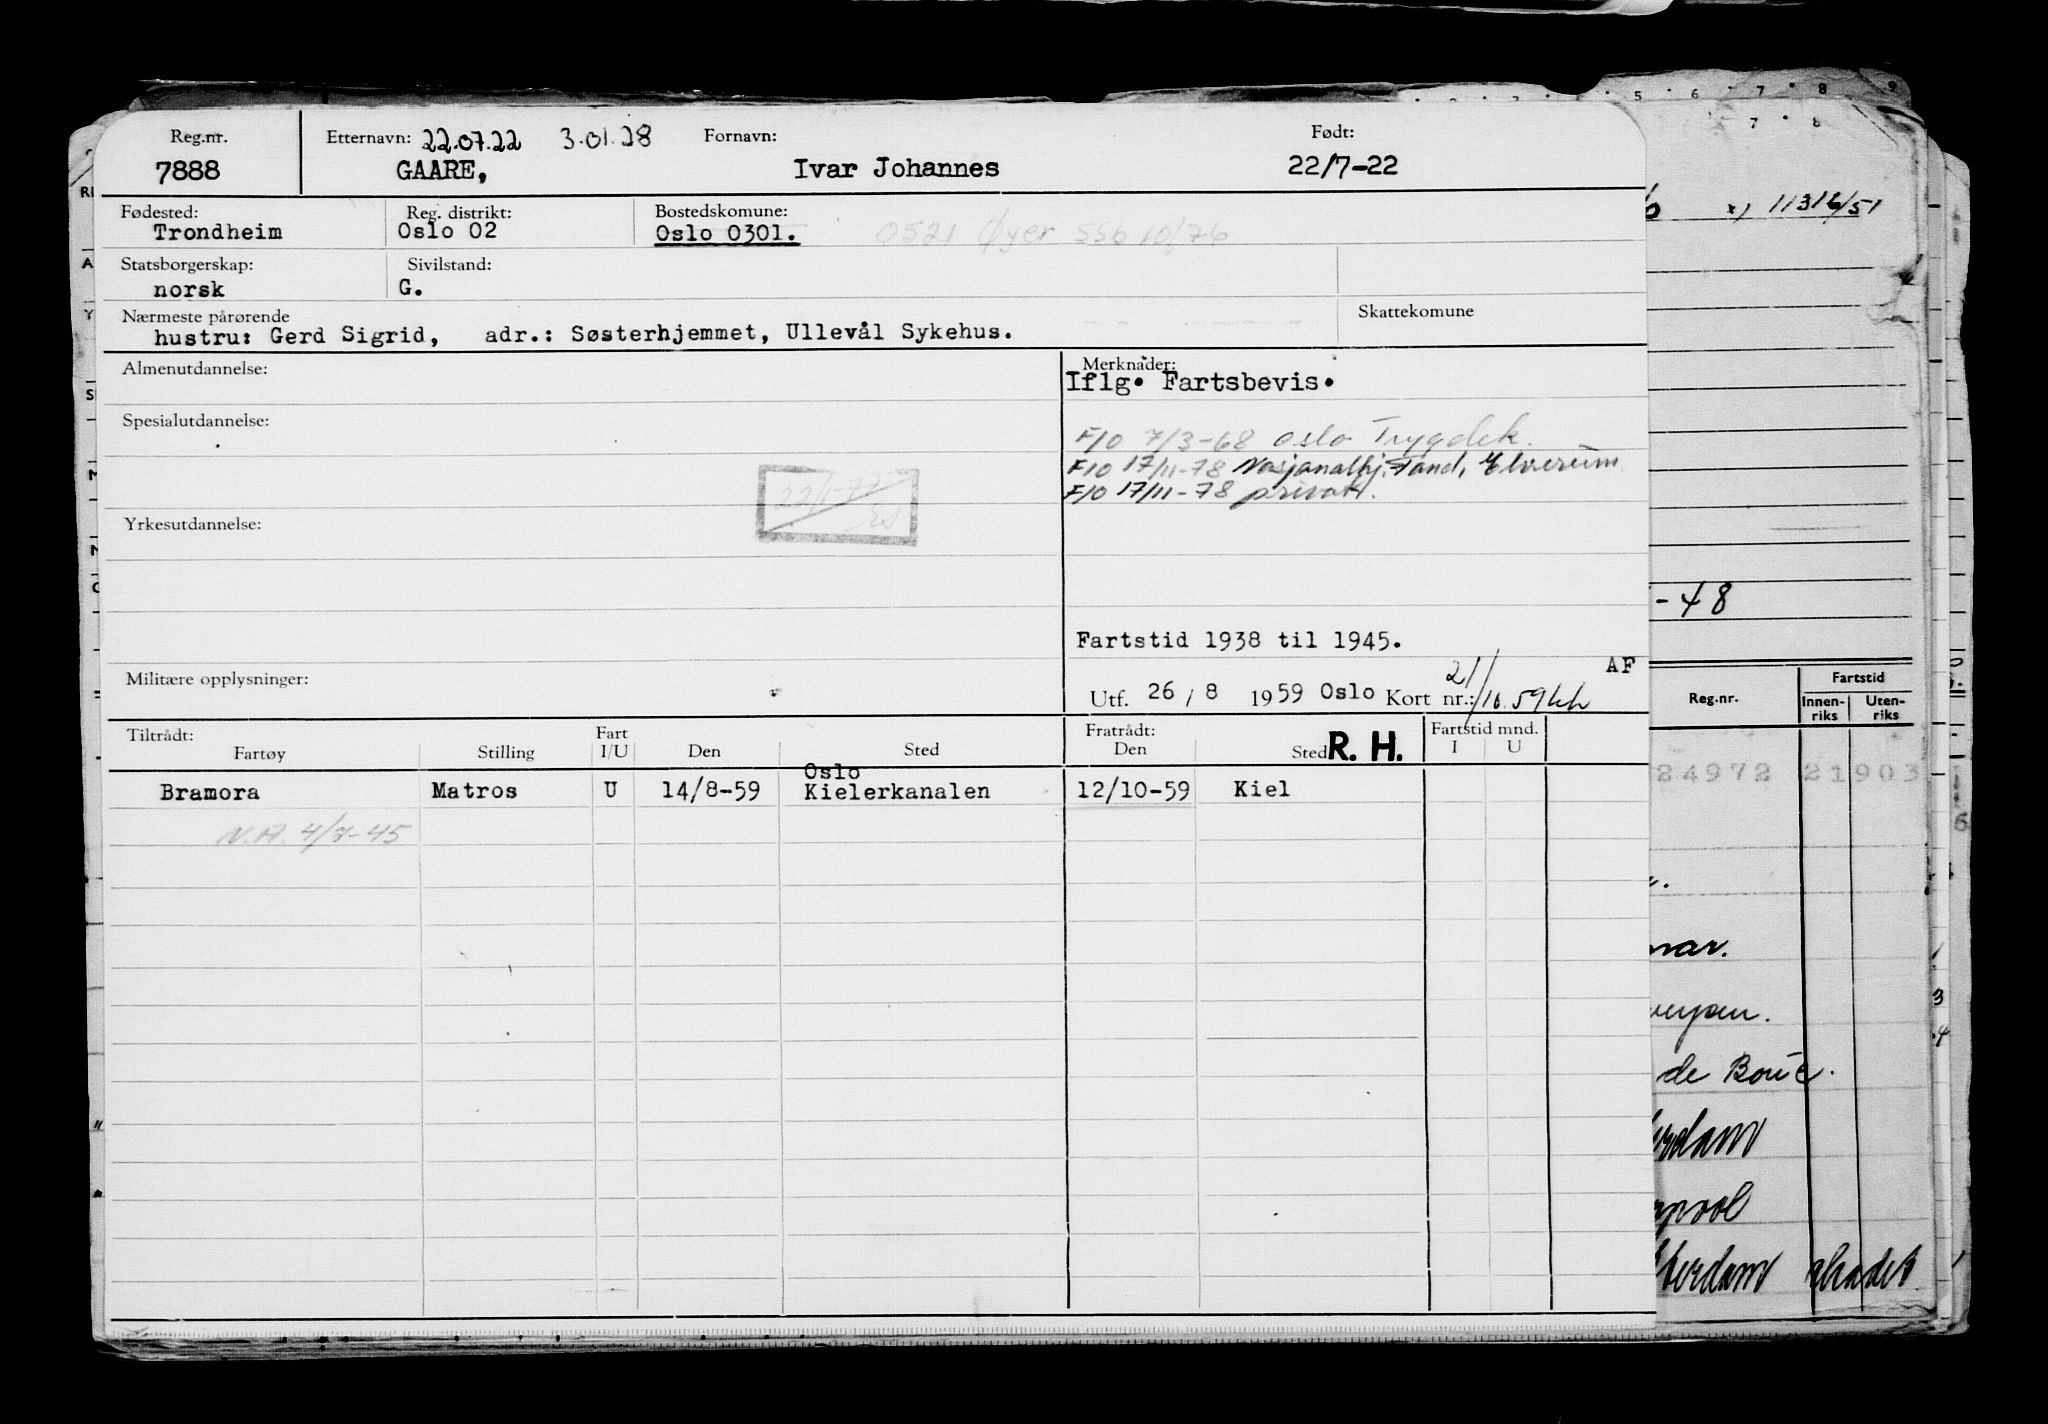 Reg.nr. Etternavn: 22.07.22 3.01.28 Fornavn: Født:
7888 GAARE, Ivar Johannes 22/7-22
Fødested: Reg. distrikt: Bostedskomune:
Trondheim Oslo 02 Oslo 0301. 0521 Øyer SSB 10/76
Statsborgerskap: Sivilstand:
norsk G.
Nærmeste pårørende Skattekomune
hustru: Gerd Sigrid, adr.: Søsterhjemmet, Ullevål Sykehus.
Almenutdannelse: Merknader:
Iflg. Fartsbevis.
Spesialutdannelse:
F10 7/3-68 Oslo Trygdek.
F10 17/11-78 Nasjonalhj. Tand, Elverum
F10 17/11-78 privat.
22/1-77
Yrkesutdannelse:
Fartstid 1938 til 1945.
AF
Militære opplysninger:
Utf. 26/8 1959 Oslo Kort nr.: 21/10.59
Tiltrådt: Fart Fratrådt: Fartstid mnd.
Fartøy Stilling I/U Den Sted Den Sted R. H. I U
Oslo
Bramora Matros U 14/8-59 Kielerkanalen 12/10-59 Kiel
N.A. 4/7-45
1 2 3 5 6 7 8 9
7 8
x) 11316/51
-48
Reg.nr. Fartstid
Innen-riks Uten-riks
24972 21903
de Bouc.